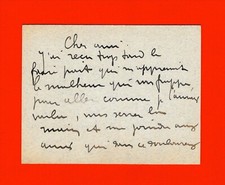 Cher ami.
J'ai reçu trop tard le
faire part qui m'apprenait
le malheur qui vous frappe,
pour aller comme je l'aurais
voulu, vous serrer la
main et me joindre aux
amis qui dans ce douloureux